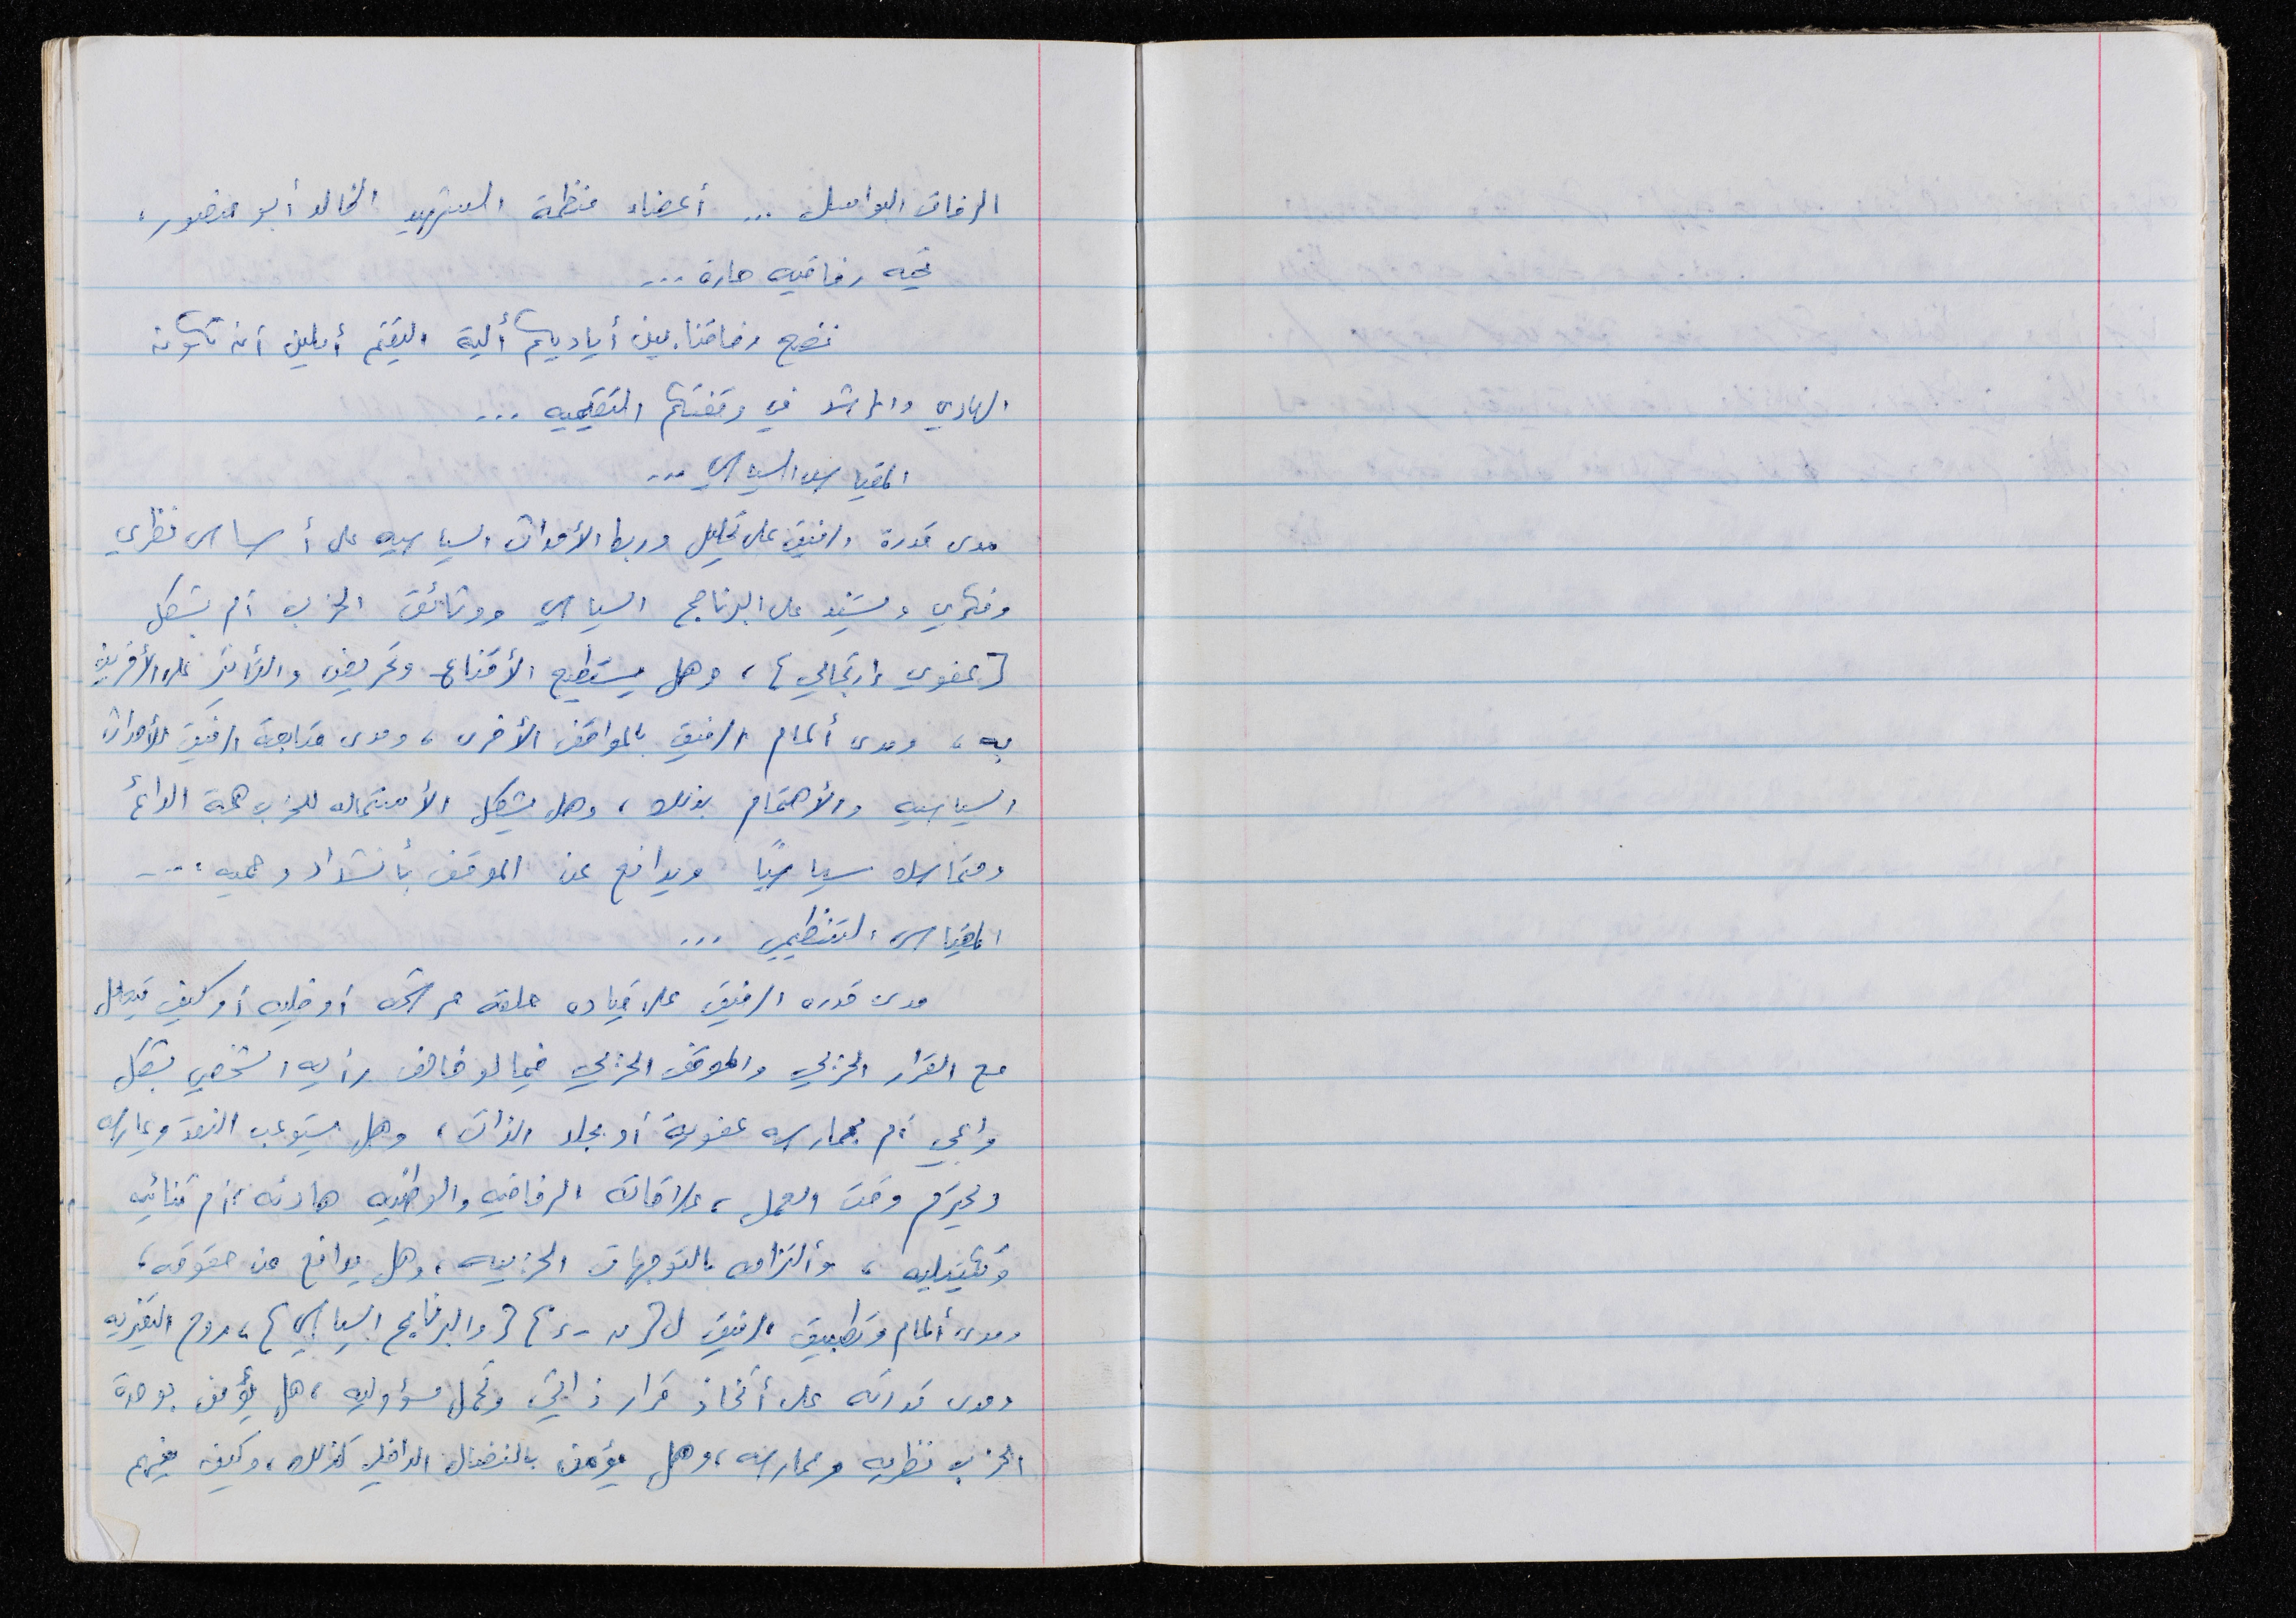 الرفاق البواسل ... أعضاء منظمة الشهيد الخالد أبو منصور،
تحيه رفاقيه حاره ...
نضع رفاقنا بين أياديكم ألية التقيم أملين أن تكون
الهادي والمرشد في وقفتكم التقيميه ...
المقياس السياسي ...
مدى قدرة الرفيق على تحليل وربط الأحداث السياسيه على أساس نظري
وفكري ويستند على البرنامج السياسي ووثائق الحزب أم بشكل
{عفوي ارتجالي}، وهل يستطيع الأقناع وتحريض والتأثير على الأخرين
به، ومدى ألمام الرفيق بالمواقف الأخرى، ومدى متابعة الرفيق للأحداث
السياسيه والأهتمام بذلك، وهل يشكل الأستماله للحزب همة الدائم
ومتماسك سياسيًا ويدافع عن الموقف بأنشداد وحميه ...
المقياس التنظيمي ...
مدى قدره الرفيق على قياده حلقه مرشحه أو خليه أو كيف يتعامل
مع القرار الحزبي والموقف الحزبي فيما لو خالف رأيه الشخصي بشكل
واعي أم بممارسه عفوية أو بجلد الذات، وهل يستوعب النقد ويمارسه
ويحترم وقت العمل، علاقاته الرفاقيه والوطنيه هادئه أم ثنائيه
وتكتيليه، وألتزامه بالتوجهات الحزبيه، وهل يدافع عن حقوقه،
ومدى ألمام وتطبيق الرفيق ل {ن.د} {والبرنامج السياسي}، روح التعزيه
ومدى قدرته على أتخاذ قرار ذاتي وتحمل مسؤوليه، هل يؤمن بوحدة
الحزب نظريه وممارسه، وهل يؤمن بالنضال الداخلي كذلك، وكيف يفهم